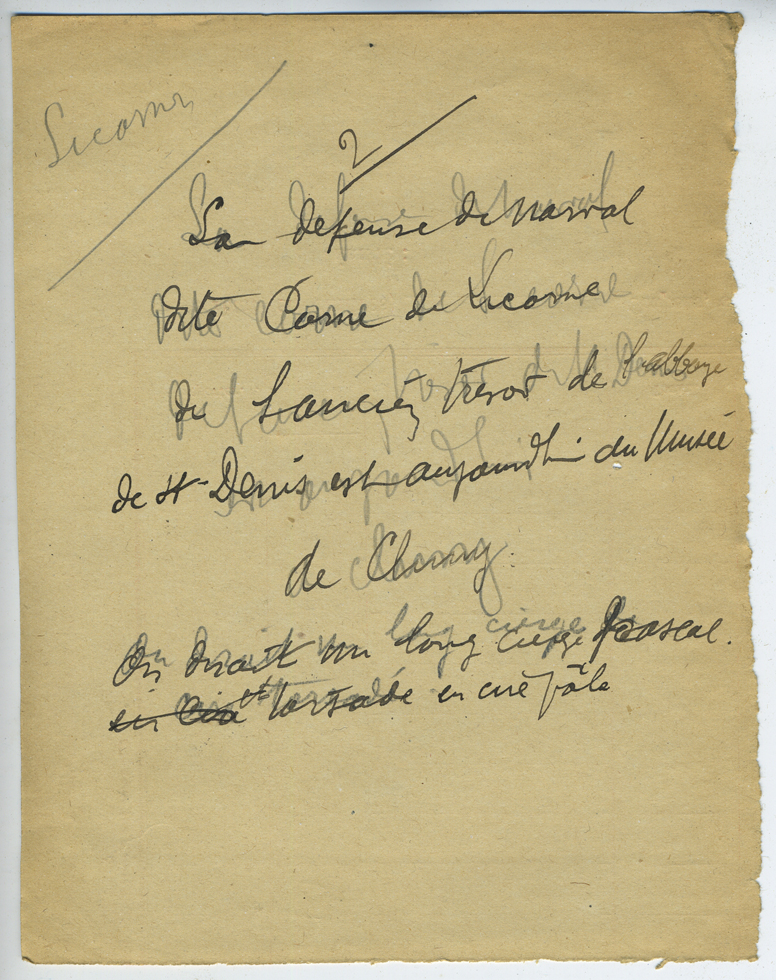 Licorne
2
La défense de Narval
dite Corne de Licorne
de L'ancien trésor de l'abbaye
de St Denis est aujourd'hui au Musée
de Cluny.
On dirait un long cierge Pascal.
en Cire torsade en cire pâle